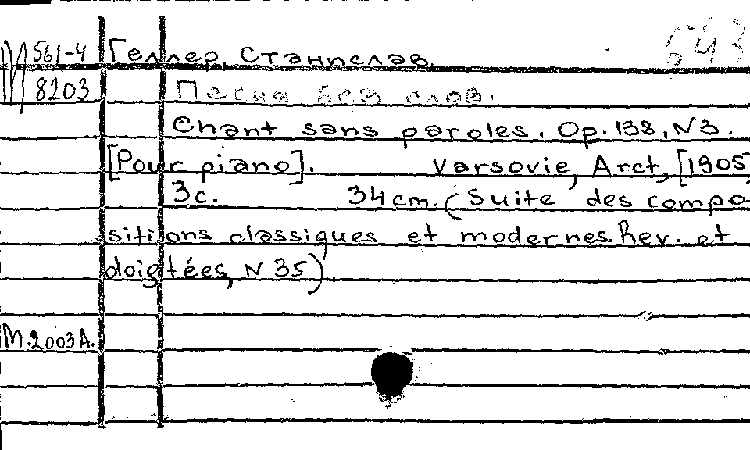 561-4 Геллер, Станислав.
643
8203 Песня без слов.
Chant sans paroles. Op. 138, N3.
[Pour piano]. Varsovie, Arct, [1905]
3c. 34cm. (Suite des compo
sitions classiques et modernes. Rev. et
doigtées, N 35)
M.2003A.